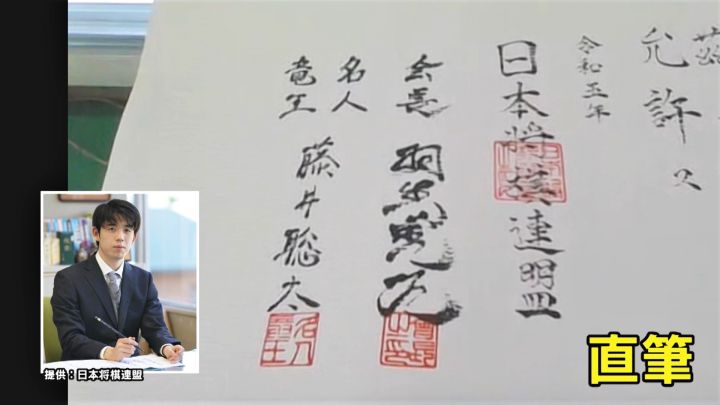 允許ス
令和五年
日本将棋連盟
会長 羽生善治
名人
竜王
藤井聡太
提供:日本将棋連盟
直筆